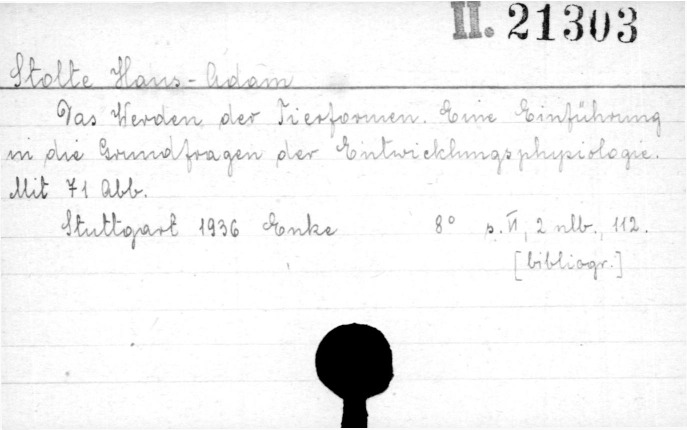 II. 21303
Stolte Hans-Adam
Das Werden der Tierformen. Eine Einführung
in die Grundfragen der Entwicklungsphysiologie.
Mit 71 Abb.
Stuttgart 1936 Enke 8° s. VI, 2 nlb., 112.
[bibliogr.]